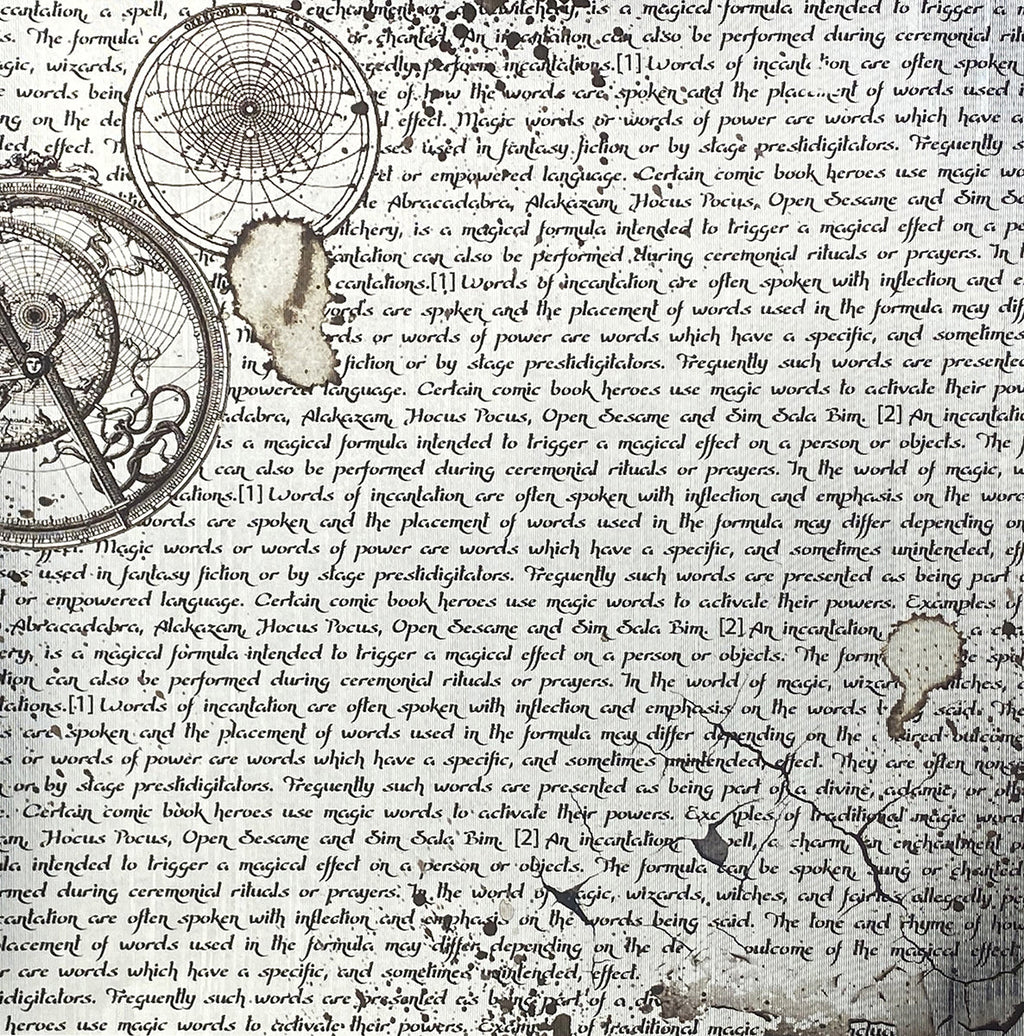 cantation, a spell, a enchantment or a witchery, is a magical formula intended to trigger a
s. The formula or chanted. An incantation can also be performed during ceremonial
agic, wizards, perform incantations.[1] Words of are often spoken
words being of how the words are spoken and the of words used
ng on the effect. Magic words or words of power are words which have a
effect. used in fantasy fiction or by stage prestidigitators. Frequently
or empowered language. Certain comic book heroes use magic
Abracadabra, Alakazam, Hocus Pocus, Open Sesame and Sim
is a magical formula intended to trigger a magical effect on a
can also be performed during ceremonial rituals or prayers. In
cantations.[1] Words of incantation are often spoken with inflection and
words are spoken and the placement of words used in the formula may
or words of power are words which have a specific, and sometimes
in fiction or by stage prestidigitators. Frequently such words are presented
mpowered language. Certain comic book heroes use magic words to activate their
adabra, Alakazam, Hocus Pocus, Open Sesame and Sim Sala Bim. [2] An
is a magical formula intended to trigger a magical effect on a person or objects. The
can also be performed during ceremonial rituals or prayers. In the world of magic,
tations.[1] Words of incantation are often spoken with inflection and emphasis on the
words are spoken and the placement of words used in the formula may differ depending on
Magic words or words of power are words which have a specific, and sometimes unintended,
used in fantasy fiction or by stage prestidigitators. Frequently such words are presented as being part
or empowered language. Certain comic book heroes use magic words to activate their powers. Examples of
Abracadabra, Alakazam, Hocus Pocus, Open Sesame and Sim Sala Bim. [2] An incantation, a
is a magical formula intended to trigger a magical effect on a person or objects. The
tion can also be performed during ceremonial rituals or prayers. In the world of magic,
tations.[1] Words of incantation are often spoken with inflection and emphasis on the words said. The
s are spoken and the placement of words used in the formula may differ depending on the outcome
s or words of power are words which have a specific, and sometimes unintended, effect. They are often
or by stage prestidigitators. Frequently such words are presented as being part of a divine, adamic, or
e. Certain comic book heroes use magic words to activate their powers. of traditional magic
am, Hocus Pocus, Open Sesame and Sim Sala Bim. [2] An incantation a charm, an enchantment
ula intended to trigger a magical effect on a person or objects. The formula can be spoken, sung or chanted
rmed during ceremonial rituals or prayers. In the world of wizards, witches, and fairies allegedly
cantation are often spoken with inflection and emphasis on the words being said. The tone and rhyme of how
placement of words used in the formula may differ depending on the outcome of the magical effect
r are words which have a specific, and sometimes unintended, effect.
idigitators. Frequently such words are presented as being part of a
heroes use magic words to activate their powers. of traditional magic